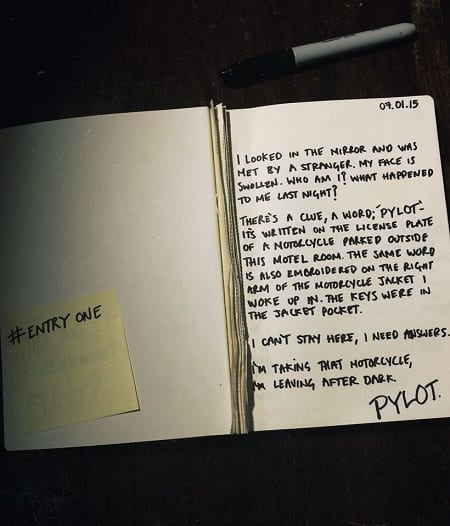 #ENTRY ONE
09.01.15
I LOOKED IN THE MIRROR AND WAS
MET BY A STRANGER. MY FACE IS
SWOLLEN. WHO AM I? WHAT HAPPENED
TO ME LAST NIGHT?
THERE'S A CLUE, A WORD; 'PYLOT'-
IT'S WRITTEN ON THE LICENSE PLATE
OF A MOTORCYCLE PARKED OUTSIDE
THIS MOTEL ROOM. THE SAME WORD
IS ALSO EMBROIDERED ON THE RIGHT
ARM OF THE MOTORCYCLE JACKET I
WOKE UP IN. THE KEYS WERE IN
THE JACKET POCKET.
I CAN'T STAY HERE, I NEED ANSWERS.
I'M TAKING THAT MOTORCYCLE,
I'M LEAVING AFTER DARK.
PYLOT.